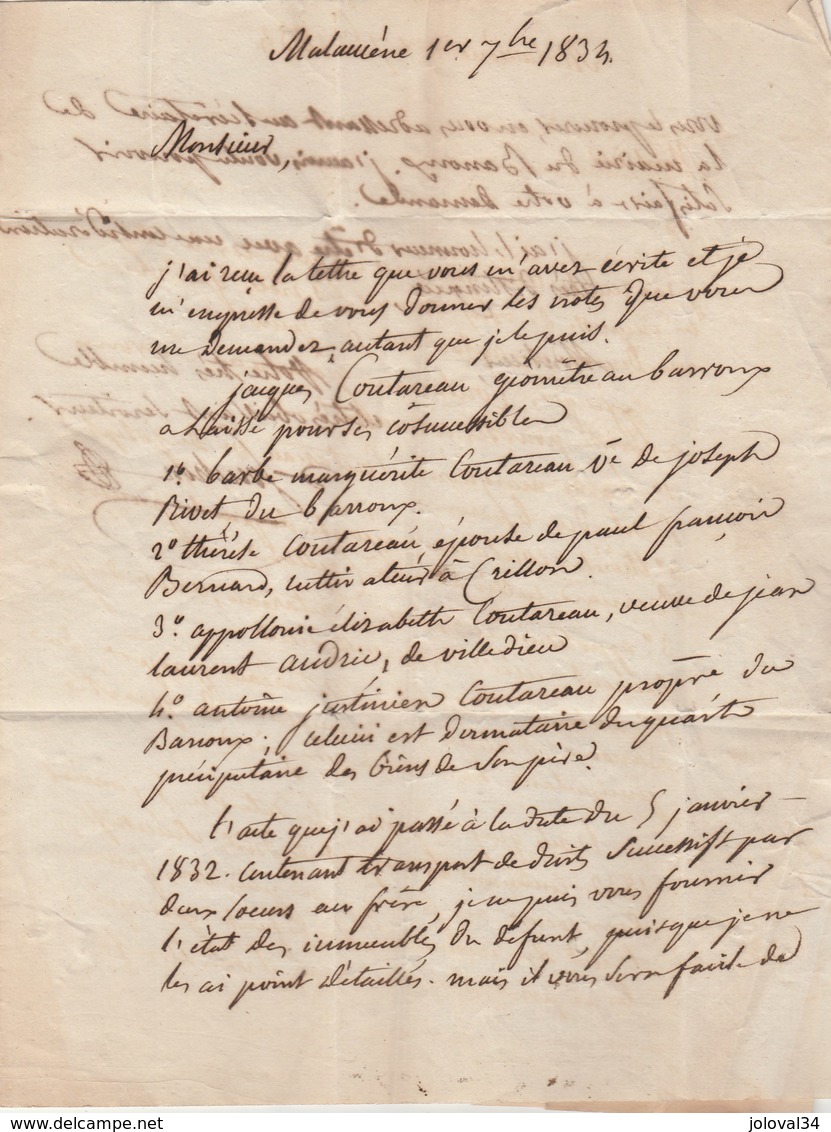 Malaucène 1er 7bre 1834.
Monsieur,
j'ai reçu la lettre que vous m'avez écrite et je
m'empresse de vous donner les notes que vous
me demandez, autant que je le puis.
jacques Coutareau géomètre au barroux
a laissé pour ses cosuccessibles
1º. barbe marguérite Coutareau Ve de joseph
Rivet, du barroux.
2º thérèse Coutareau, épouse de paul françois
Bernard, cultivateur à Crillon.
3º. appollonie élizabeth Coutareau, veuve de jean
laurent audric, de villedieu
4º. antoine justinien Coutareau propre du
Barroux; celui ci est donnataire du quart
préciputaire des biens de son père.
l'acte que j'ai passé à la date du 5 janvier
1832. contenant transport de droits successifs par
deux soeurs au frère, je ne puis vous fournir
l'état des immeubles du défunt, puisque je ne
les ai point détaillés. mais il vous sera facile de
joloval34